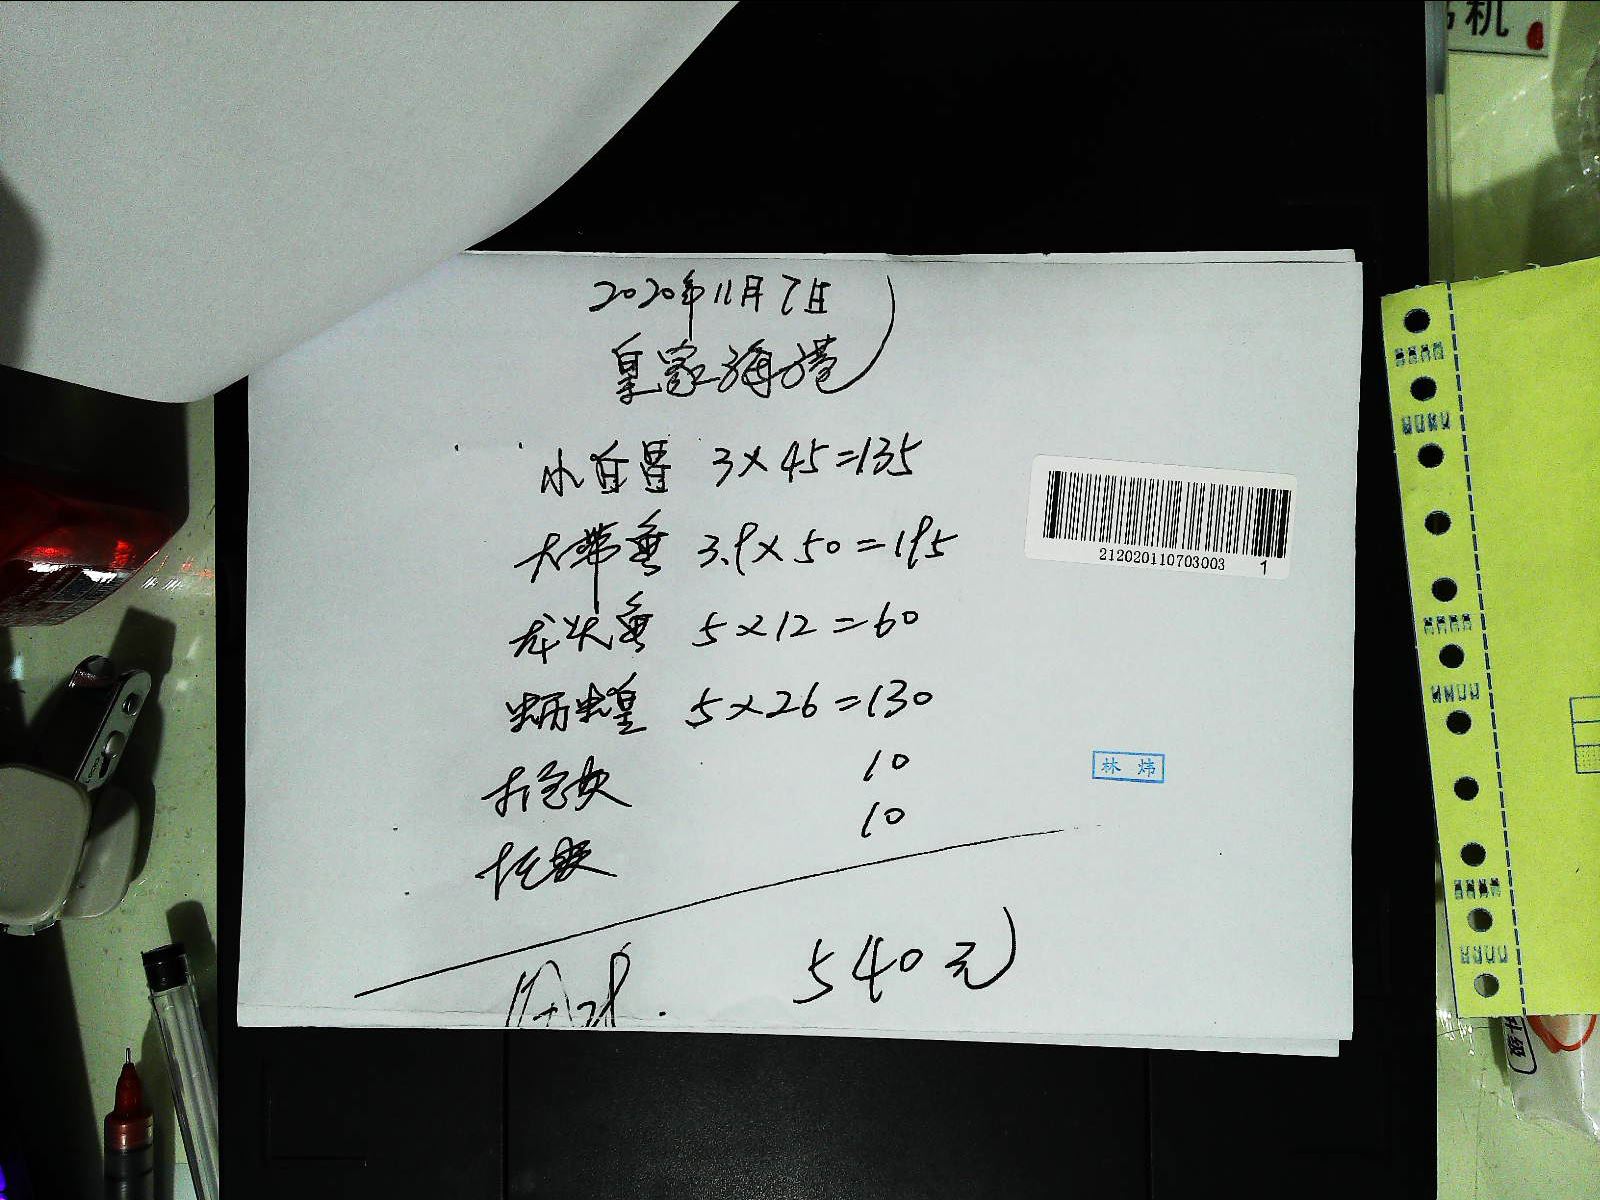 机
2020年11月7日
皇家海港
小白昌 3×45=135
大带鱼 3.9×50=195
龙头鱼 5×12=60
蚂蝗 5×26=130
10
10
540元
212020110703003 1
林 炜